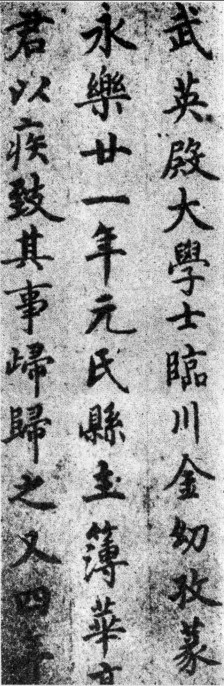 武英殿大學士臨川金幼孜篆
永樂廿一年元氏縣主簿華
君以疾致其事歸歸之又四年